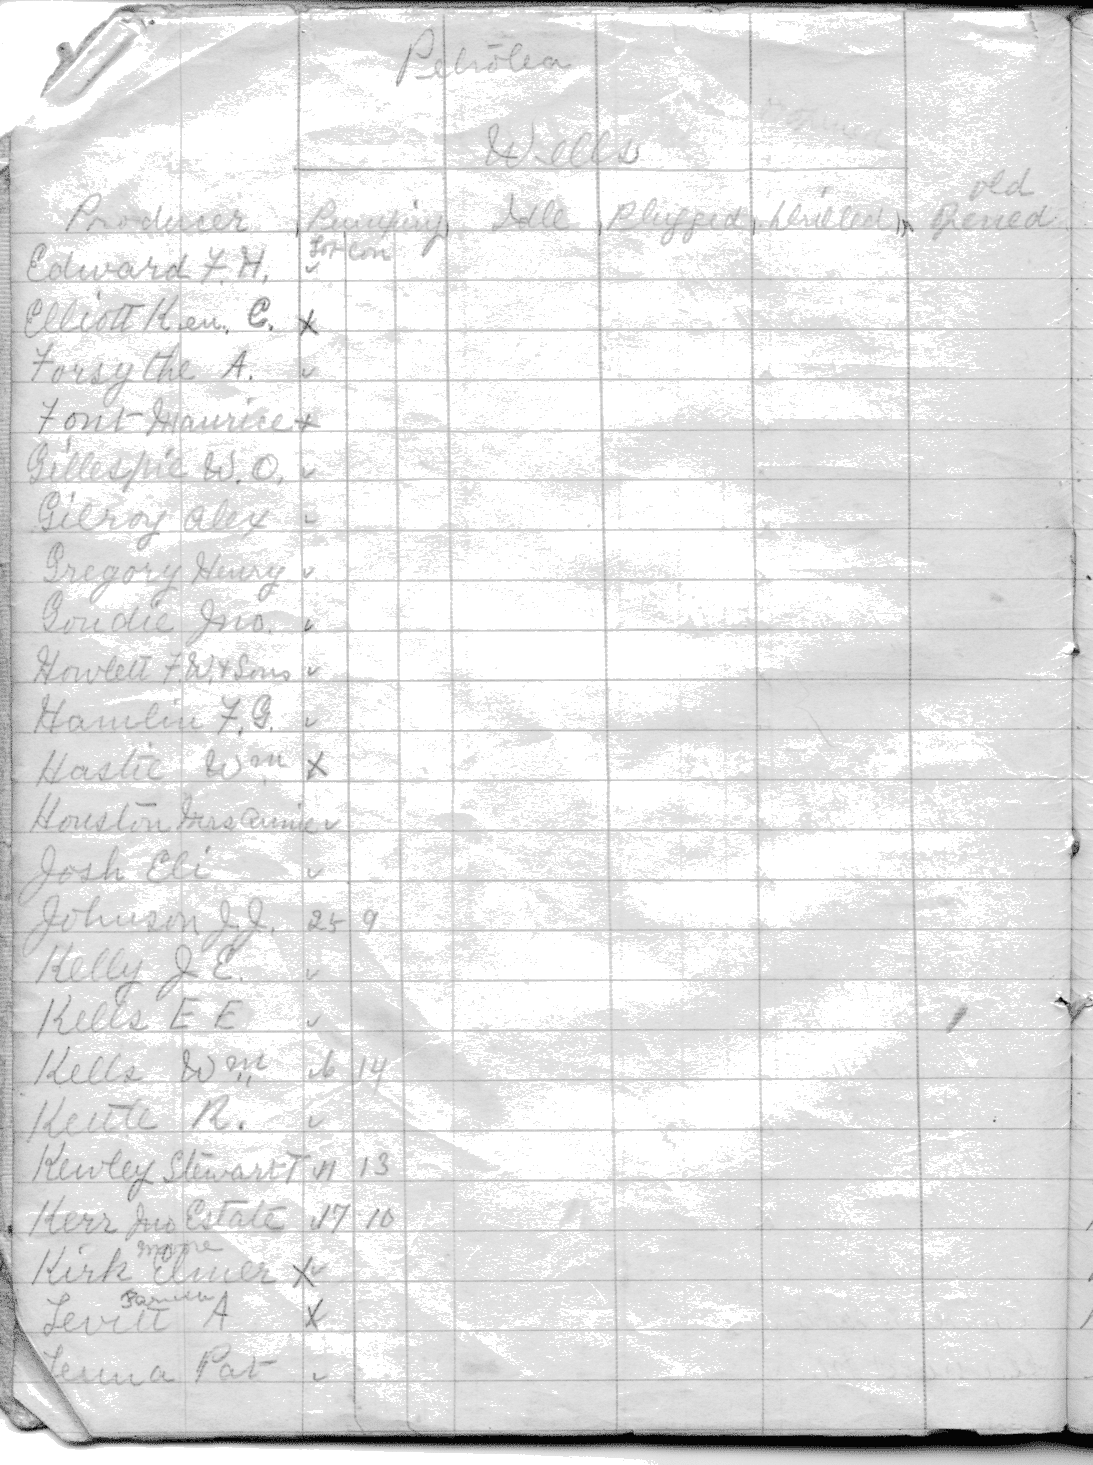 Petrolea
Wells
Producer Pumping Idle Plugged Drilled old Opened
Lot Con
Edward F. H. ✓
Elliott Ken. C. X
Forsythe A. ✓
Font Maurice X
Gillespie W. O. ✓
Gilroy Alex ✓
Gregory Henry ✓
Goudie Jno. ✓
Howlett F. W. & Sons ✓
Hamlin F. G. ✓
Hastie Wm X
Houston Mrs Annie ✓
Josh Eli ✓
Johnson J. J. 25 9
Kelly J E. ✓
Kells E E ✓
Kells Wm ✓ 6 14
R. ✓
Kewley Stewart T ✓ 11 13
Kerr Jno Estate ✓ 17 10
Moore
Kirk Elmer X ✓
Levitt A X
Pat ✓